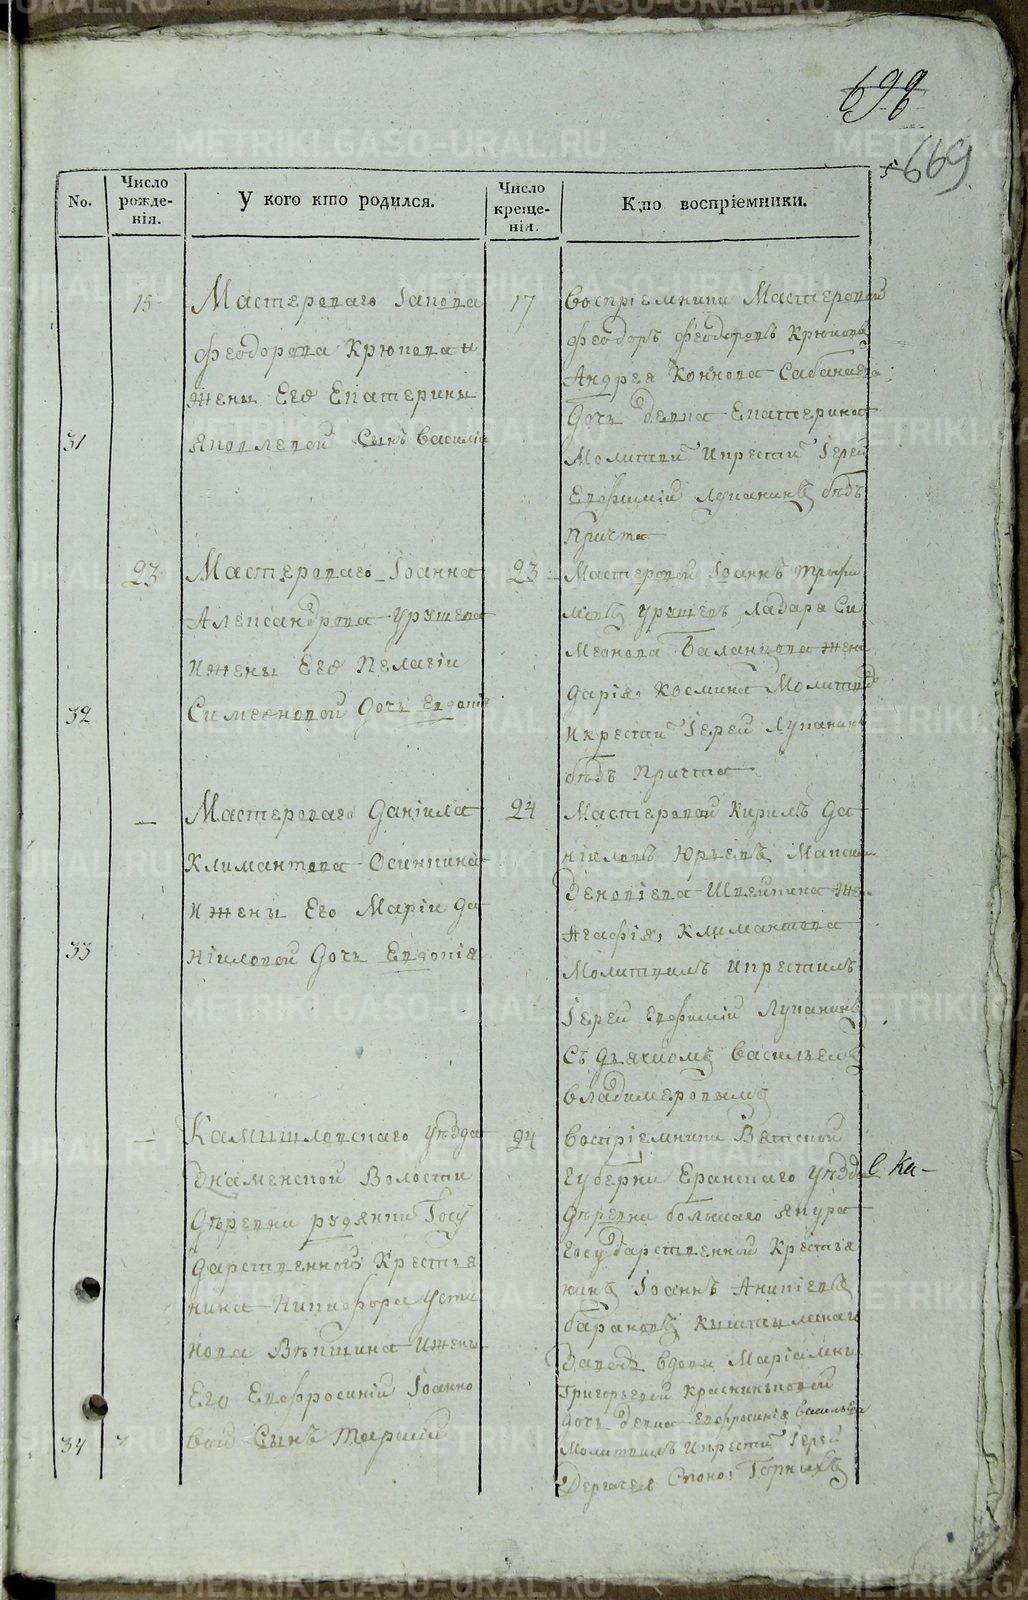 698
669
No.
Число рожде- нія.
У кого кто родился.
Число креще- нія.
Кто воспріемники.
15
Мастероваго Іакова
Феодорова Крюкова и
жены Его Екатерины
Яковлевой Сынъ Василій
31
17
Воспріемники Мастеровой
Феодоръ Феодоровъ Крюковъ
Андрея Конова
Дочь девка Екатерина
Молитви и крести Іерей
Евфимій Лупанинъ безъ
Причта
23
Мастероваго Іоанна
Александрова
и жены Его Пелагіи
Симеоновой Дочь Евдокія
32
23
Мастеровой Іоаннъ
Лазаря Си
меонова Баланцова жена
Дарія Космина Молитви
и крести Іерей Лупанинъ
безъ Причта
—
Мастероваго Даніила
Климантова Осинкина
и жены Его Маріи Да
ніиловой Дочь Евдокія
33
24
Мастеровой Кирилъ Да
ніиловъ Юрьевъ Макси
Зеновіева Шпейкина же
Агафія, Климантова
Молитвилъ и крестилъ
Іерей Евфимій Лупанинъ
Съ дьячкомъ Васильемъ
Владимеровымъ
—
Камышловскаго уезда
Знаменской Волости
Деревни Госу
дарственного Крестья
нина Никифора Усти
нова и жены
Его Евфросиніи Іоанно
вой Сынъ Тарасій
34
24
Воспріемники Вятской
Губерни Еранскаго уезда
Деревни большаго Якура
Государственной Крестья
нинъ Іоаннъ Аникіевъ
барановъ Кыштымскаго
Завода вдовы Маріамны
Григорьевой
дочь девка Евфросинія Васильева
Молитвилъ и крести Іерей
Дергачев Горныхъ
С Ка-
METRIKI.GASO-URAL.RU